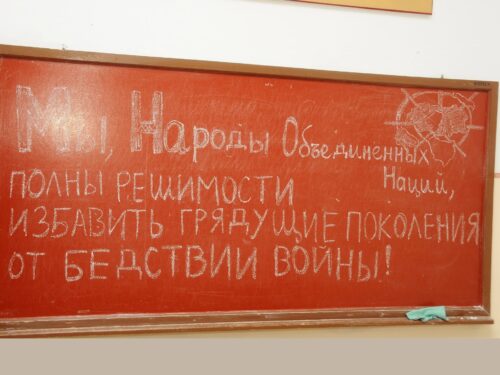 Мы, Народы Объединенных
Наций,
ПОЛНЫ РЕШИМОСТИ
ИЗБАВИТЬ ГРЯДУЩИЕ ПОКОЛЕНИЯ
ОТ БЕДСТВИЙ ВОЙНЫ!